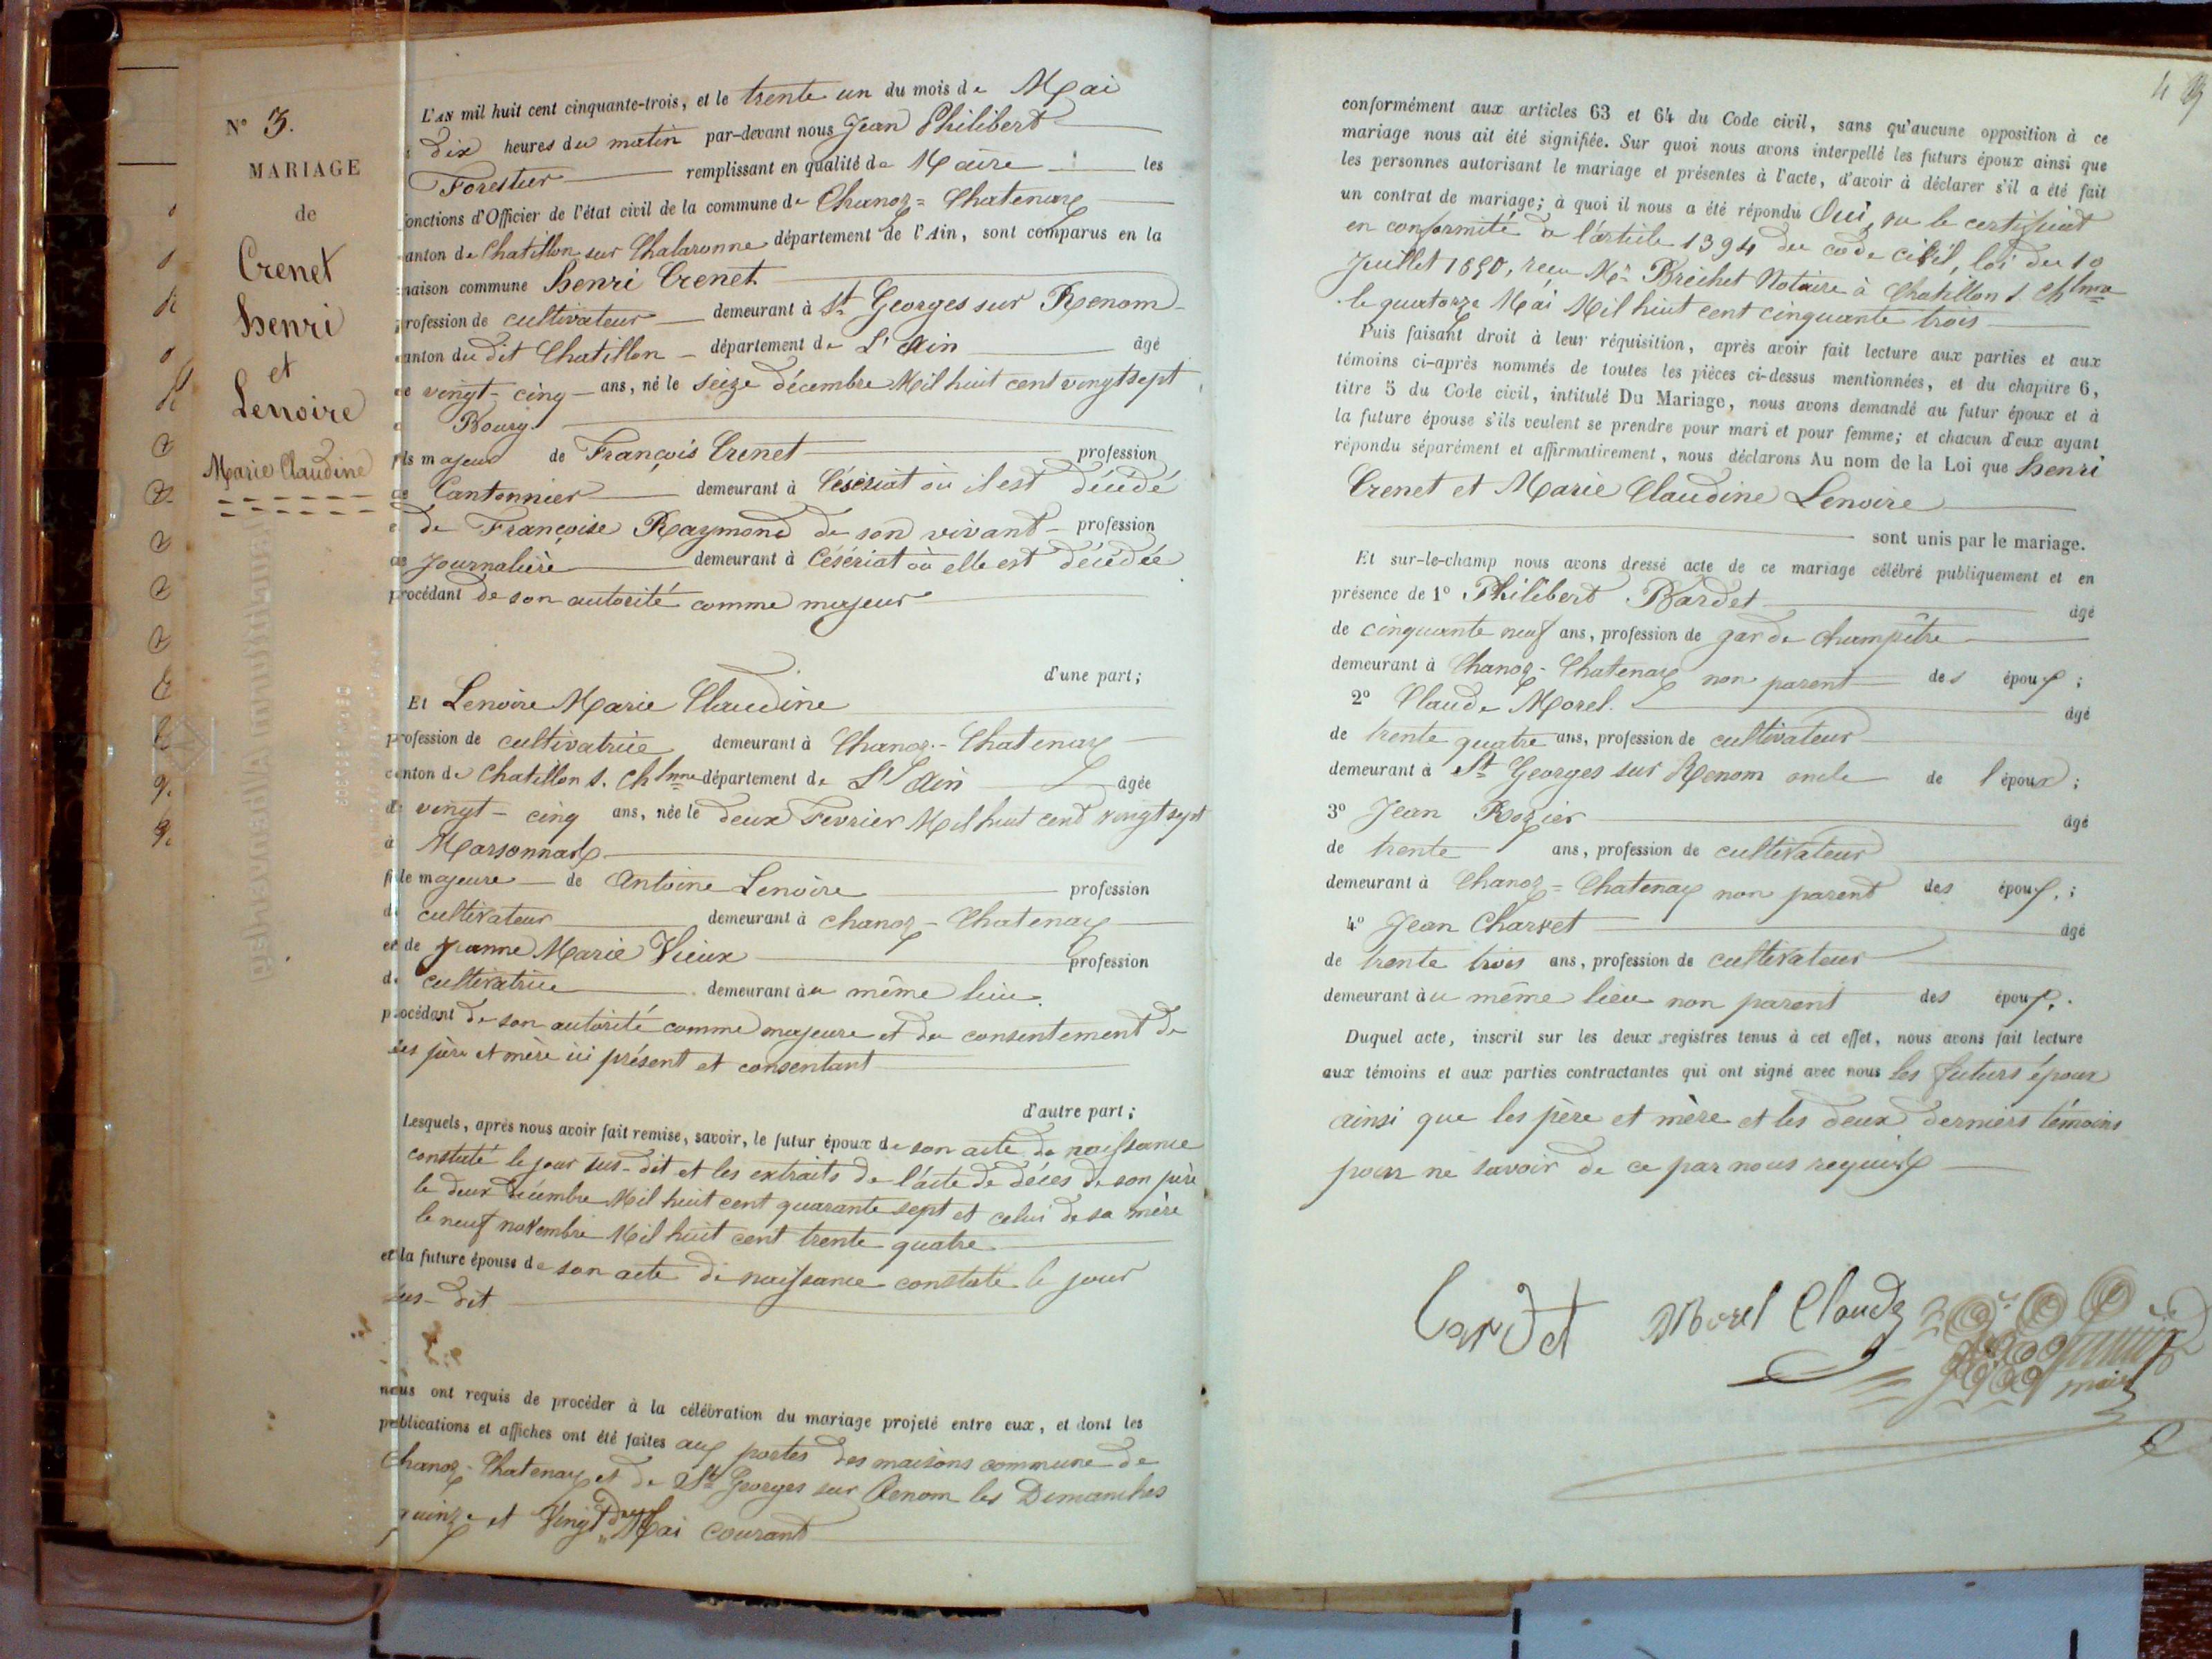 N° 3.
MARIAGE
de
Crenet
henri
et
Lenoire
Marie Claudine
L'AN mil huit cent cinquante-trois, et le trente un du mois de Mai
dix heures du matin par-devant nous Jean Philibert
Forestier remplissant en qualité de Maire les
fonctions d'Officier de l'état civil de la commune de Chanoz = Chatenay
canton de Chatillon sur Chalaronne département de l'Ain, sont comparus en la
maison commune henri Crenet
profession de cultivateur demeurant à St Georges sur Renom
canton du dit Chatillon département de L'Ain âgé
de vingt-cinq ans, né le seize décembre Mil huit cent vingt sept
à Bourg.
fils majeur de François Crenet profession
de Cantonnier demeurant à Céséziat où il est décédé
et de Françoise Raymond de son vivant profession
de Journalière demeurant à Céséziat où elle est décédée
procédant de son autorité comme majeur
d'une part;
Et Lenoire Marie Claudine
profession de cultivatrice demeurant à Chanoz-Chatenay
canton de Chatillon s. Chlnne département de L'Ain âgée
de vingt-cinq ans, née le deux Fevrier Mil huit cent vingt sept
à Marsonnax
fille majeure de Antoine Lenoire profession
de cultivateur demeurant à chanoz-Chatenay
et de Jeanne Marie Vieux profession
de cultivatrice demeurant au même lieu.
procédant de son autorité comme majeure et du consentement de
ses père et mère ici présent et consentant
d'autre part;
Lesquels, après nous avoir fait remise, savoir, le futur époux de son acte de naissance
constaté le jour sus-dit et les extraits de l'acte de décès de son père
le deux décembre Mil huit cent quarante sept et celui de sa mère
le neuf novembre Mil huit cent trente quatre
et la future épouse de son acte de naissance constaté le jour
sus-dit
nous ont requis de procéder à la célébration du mariage projeté entre eux, et dont les
publications et affiches ont été faites aux portes des maisons commune de
Chanoz-Chatenay et de St Georges sur Renom les Dimanches
quinze et Vingt deux Mai courant
49
conformément aux articles 63 et 64 du Code civil, sans qu'aucune opposition à ce
mariage nous ait été signifiée. Sur quoi nous avons interpellé les futurs époux ainsi que
les personnes autorisant le mariage et présentes à l'acte, d'avoir à déclarer s'il a été fait
un contrat de mariage; à quoi il nous a été répondu Oui, vu le certificat
en conformité de l'article 1394 du code civil, loi du 10
Juillet 1850, reçu Me Bréchet Notaire à Chatillon s. Chlnne
le quatorze Mai Mil huit cent cinquante trois
Puis faisant droit à leur réquisition, après avoir fait lecture aux parties et aux
témoins ci-après nommés de toutes les pièces ci-dessus mentionnées, et du chapitre 6,
titre 5 du Code civil, intitulé Du Mariage, nous avons demandé au futur époux et à
la future épouse s'ils veulent se prendre pour mari et pour femme; et chacun d'eux ayant
répondu séparément et affirmativement, nous déclarons Au nom de la Loi que henri
Crenet et Marie Claudine Lenoire
sont unis par le mariage.
Et sur-le-champ nous avons dressé acte de ce mariage célébré publiquement et en
présence de 1° Philibert Bardet âgé
de cinquante neuf ans, profession de garde champêtre
demeurant à Chanoz-Chatenay non parent des époux;
2° Claude Morel. âgé
de trente quatre ans, profession de cultivateur
demeurant à St Georges sur Renom oncle de l'époux;
3° Jean Rozier âgé
de trente ans, profession de cultivateur
demeurant à Chanoz=Chatenay non parent des époux;
4° Jean Charvet âgé
de trente trois ans, profession de cultivateur
demeurant au même lieu non parent des époux.
Duquel acte, inscrit sur les deux registres tenus à cet effet, nous avons fait lecture
aux témoins et aux parties contractantes qui ont signé avec nous les futurs époux
ainsi que les père et mère et les deux derniers témoins
pour ne savoir de ce par nous requis
Bardet Morel Claude
maire